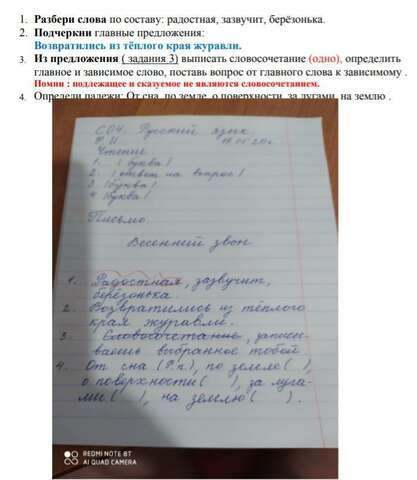 1. Разбери слова по составу: радостная, зазвучит, берёзонька.
2. Подчеркни главные предложения:
Возвратились из тёплого края журавли.
3. Из предложения ( задания 3) выписать словосочетание (одно), определить
главное и зависимое слово, поставь вопрос от главного слова к зависимому .
Помни : подлежащее и сказуемое не являются словосочетанием.
4. Определи падежи: От сна, по земле, о поверхности, за лугами, на землю .
СОЧ. Русский язык.
Ф.И
Чтение.
1. (буква)
2. (ответ на вопрос)
3 (буква)
4. (буква)
Письмо.
Весенний звон
1. Радостная, зазвучит,
берёзонька.
2. Возвратились из тёплого
края журавли.
3. Словосочетание, записы-
ваешь выбранное тобой
4. От сна (Р.п.), по земле( ),
о поверхности( ), за луга-
ми( ), на землю( ).
REDMI NOTE 8T
AI QUAD CAMERA